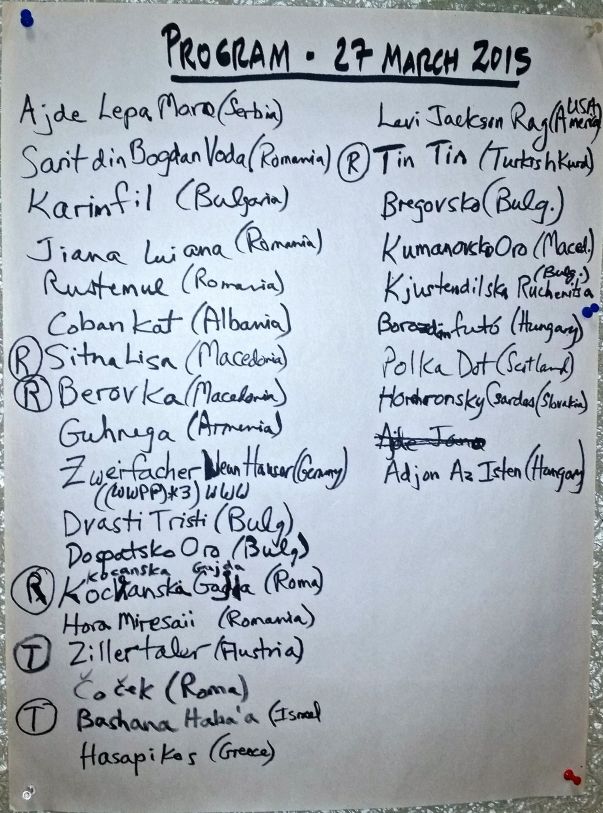 PROGRAM • 27 MARCH 2015
Ajde Lepa Maro (Serbia)
Sarit din Bogdan Voda (Romania)
Karimfil (Bulgaria)
Jiana Luiana (Romania)
Rustemul (Romania)
Coban Kat (Albania)
R Sitna Lisa (Macedonia)
R Berovka (Macedonia)
Guhnega (Armenia)
Zweifacher Neun Hauser (Germany)
((WWPP)*3) WWW
Drasti Tristi (Bulg)
Dospatsko Oro (Bulg)
Kocanska Gajda
R Kochanska Gajda (Roma)
Hora Miresaii (Romania)
T Zillertaler (Austria)
Čoček (Roma)
T Bashana Haba'a (Israel
Hasapikos (Greece)
USA
Levi Jackson Rag (America)
R Tin Tin (Turkish Kurd)
Bregovsko (Bulg.)
Kumanovsko Oro (Maced.)
(Bulg.)
Kjustendilska Ruchenitsa
futó (Hungary)
Polka Dot (Scotland)
Horehronsky Csardas (Slovakia)
Ajde Jano
Adjon Az Isten (Hungary)